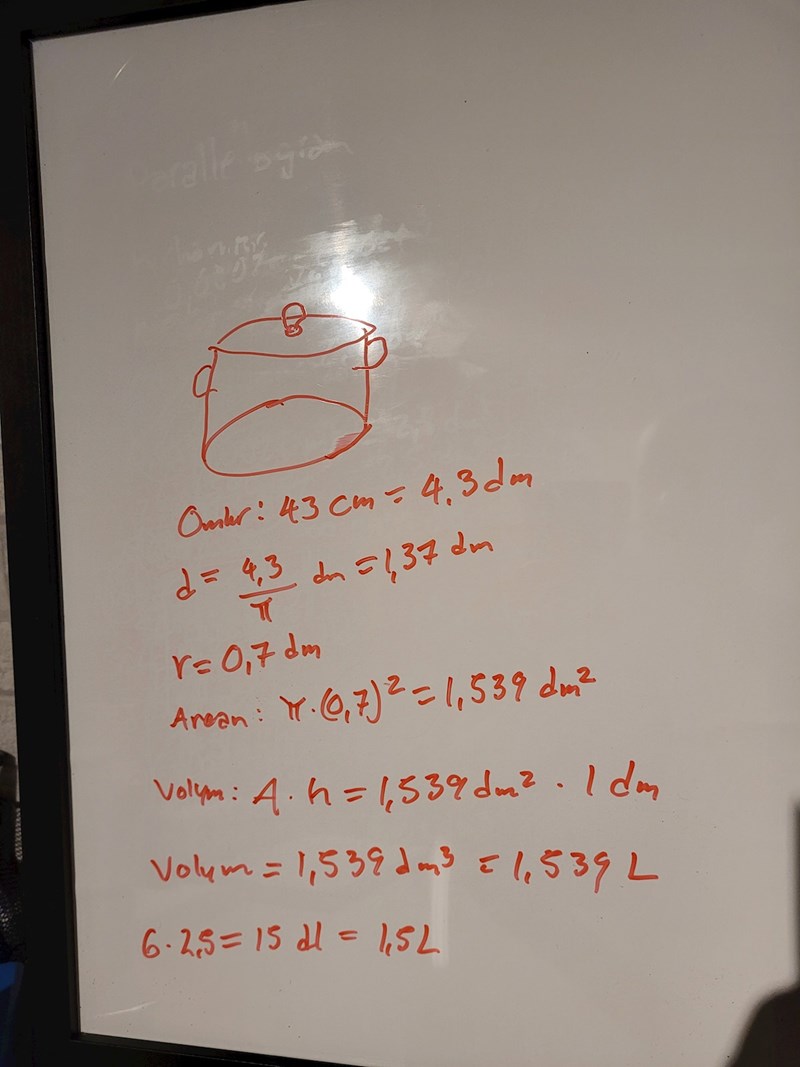 Omkr: 43 cm = 4,3 dm
d = 4,3/π dm = 1,37 dm
r = 0,7 dm
Arean: π·(0,7)² = 1,539 dm²
Volym: A·h = 1,539 dm² · 1 dm
Volym = 1,539 dm³ = 1,539 L
6·2,5 = 15 dl = 1,5 L